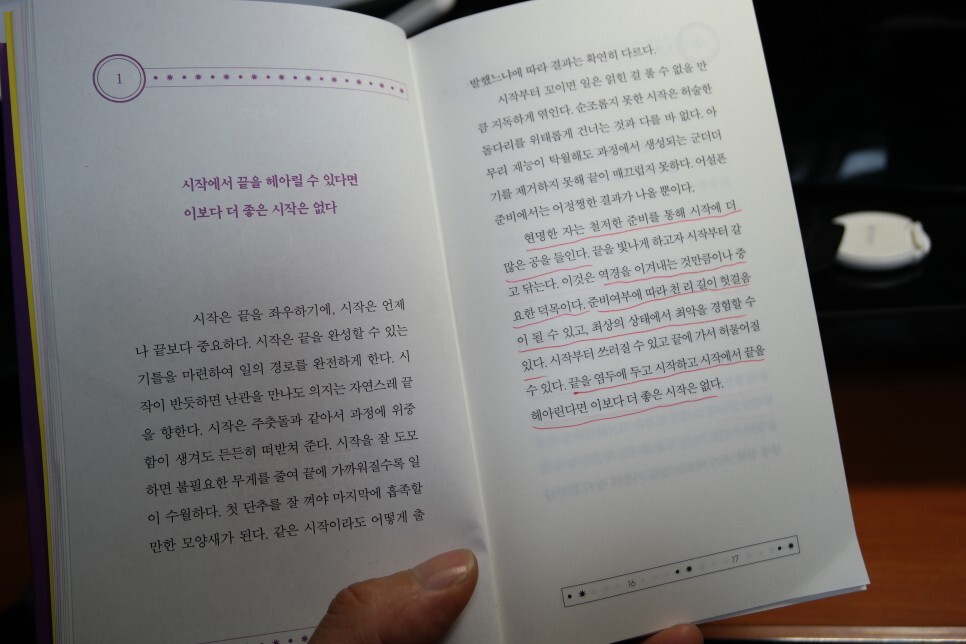 1
시작에서 끝을 헤아릴 수 있다면
이보다 더 좋은 시작은 없다
시작은 끝을 좌우하기에, 시작은 언제
나 끝보다 중요하다. 시작은 끝을 완성할 수 있는
기틀을 마련하여 일의 경로를 완전하게 한다. 시
작이 반듯하면 난관을 만나도 의지는 자연스레 끝
을 향한다. 시작은 주춧돌과 같아서 과정에 위중
함이 생겨도 든든히 떠받쳐 준다. 시작을 잘 도모
하면 불필요한 무게를 줄여 끝에 가까워질수록 일
이 수월하다. 첫 단추를 잘 껴야 마지막에 흡족할
만한 모양새가 된다. 같은 시작이라도 어떻게 출
발했느냐에 따라 결과는 확연히 다르다.
시작부터 꼬이면 일은 얽힌 걸 풀 수 없을 만
큼 지독하게 엮인다. 순조롭지 못한 시작은 허술한
돌다리를 위태롭게 건너는 것과 다를 바 없다. 아
무리 재능이 탁월해도 과정에서 생성되는 군더더
기를 제거하지 못해 끝이 매끄럽지 못하다. 어설픈
준비에서는 어정쩡한 결과가 나올 뿐이다.
현명한 자는 철저한 준비를 통해 시작에 더
많은 공을 들인다. 끝을 빛나게 하고자 시작부터 갈
고 닦는다. 이것은 역경을 이겨내는 것만큼이나 중
요한 덕목이다. 준비여부에 따라 천 리 길이 헛걸음
이 될 수 있고, 최상의 상태에서 최악을 경험할 수
있다. 시작부터 쓰러질 수 있고 끝에 가서 허물어질
수 있다. 끝을 염두에 두고 시작하고 시작에서 끝을
헤아린다면 이보다 더 좋은 시작은 없다.
16 17